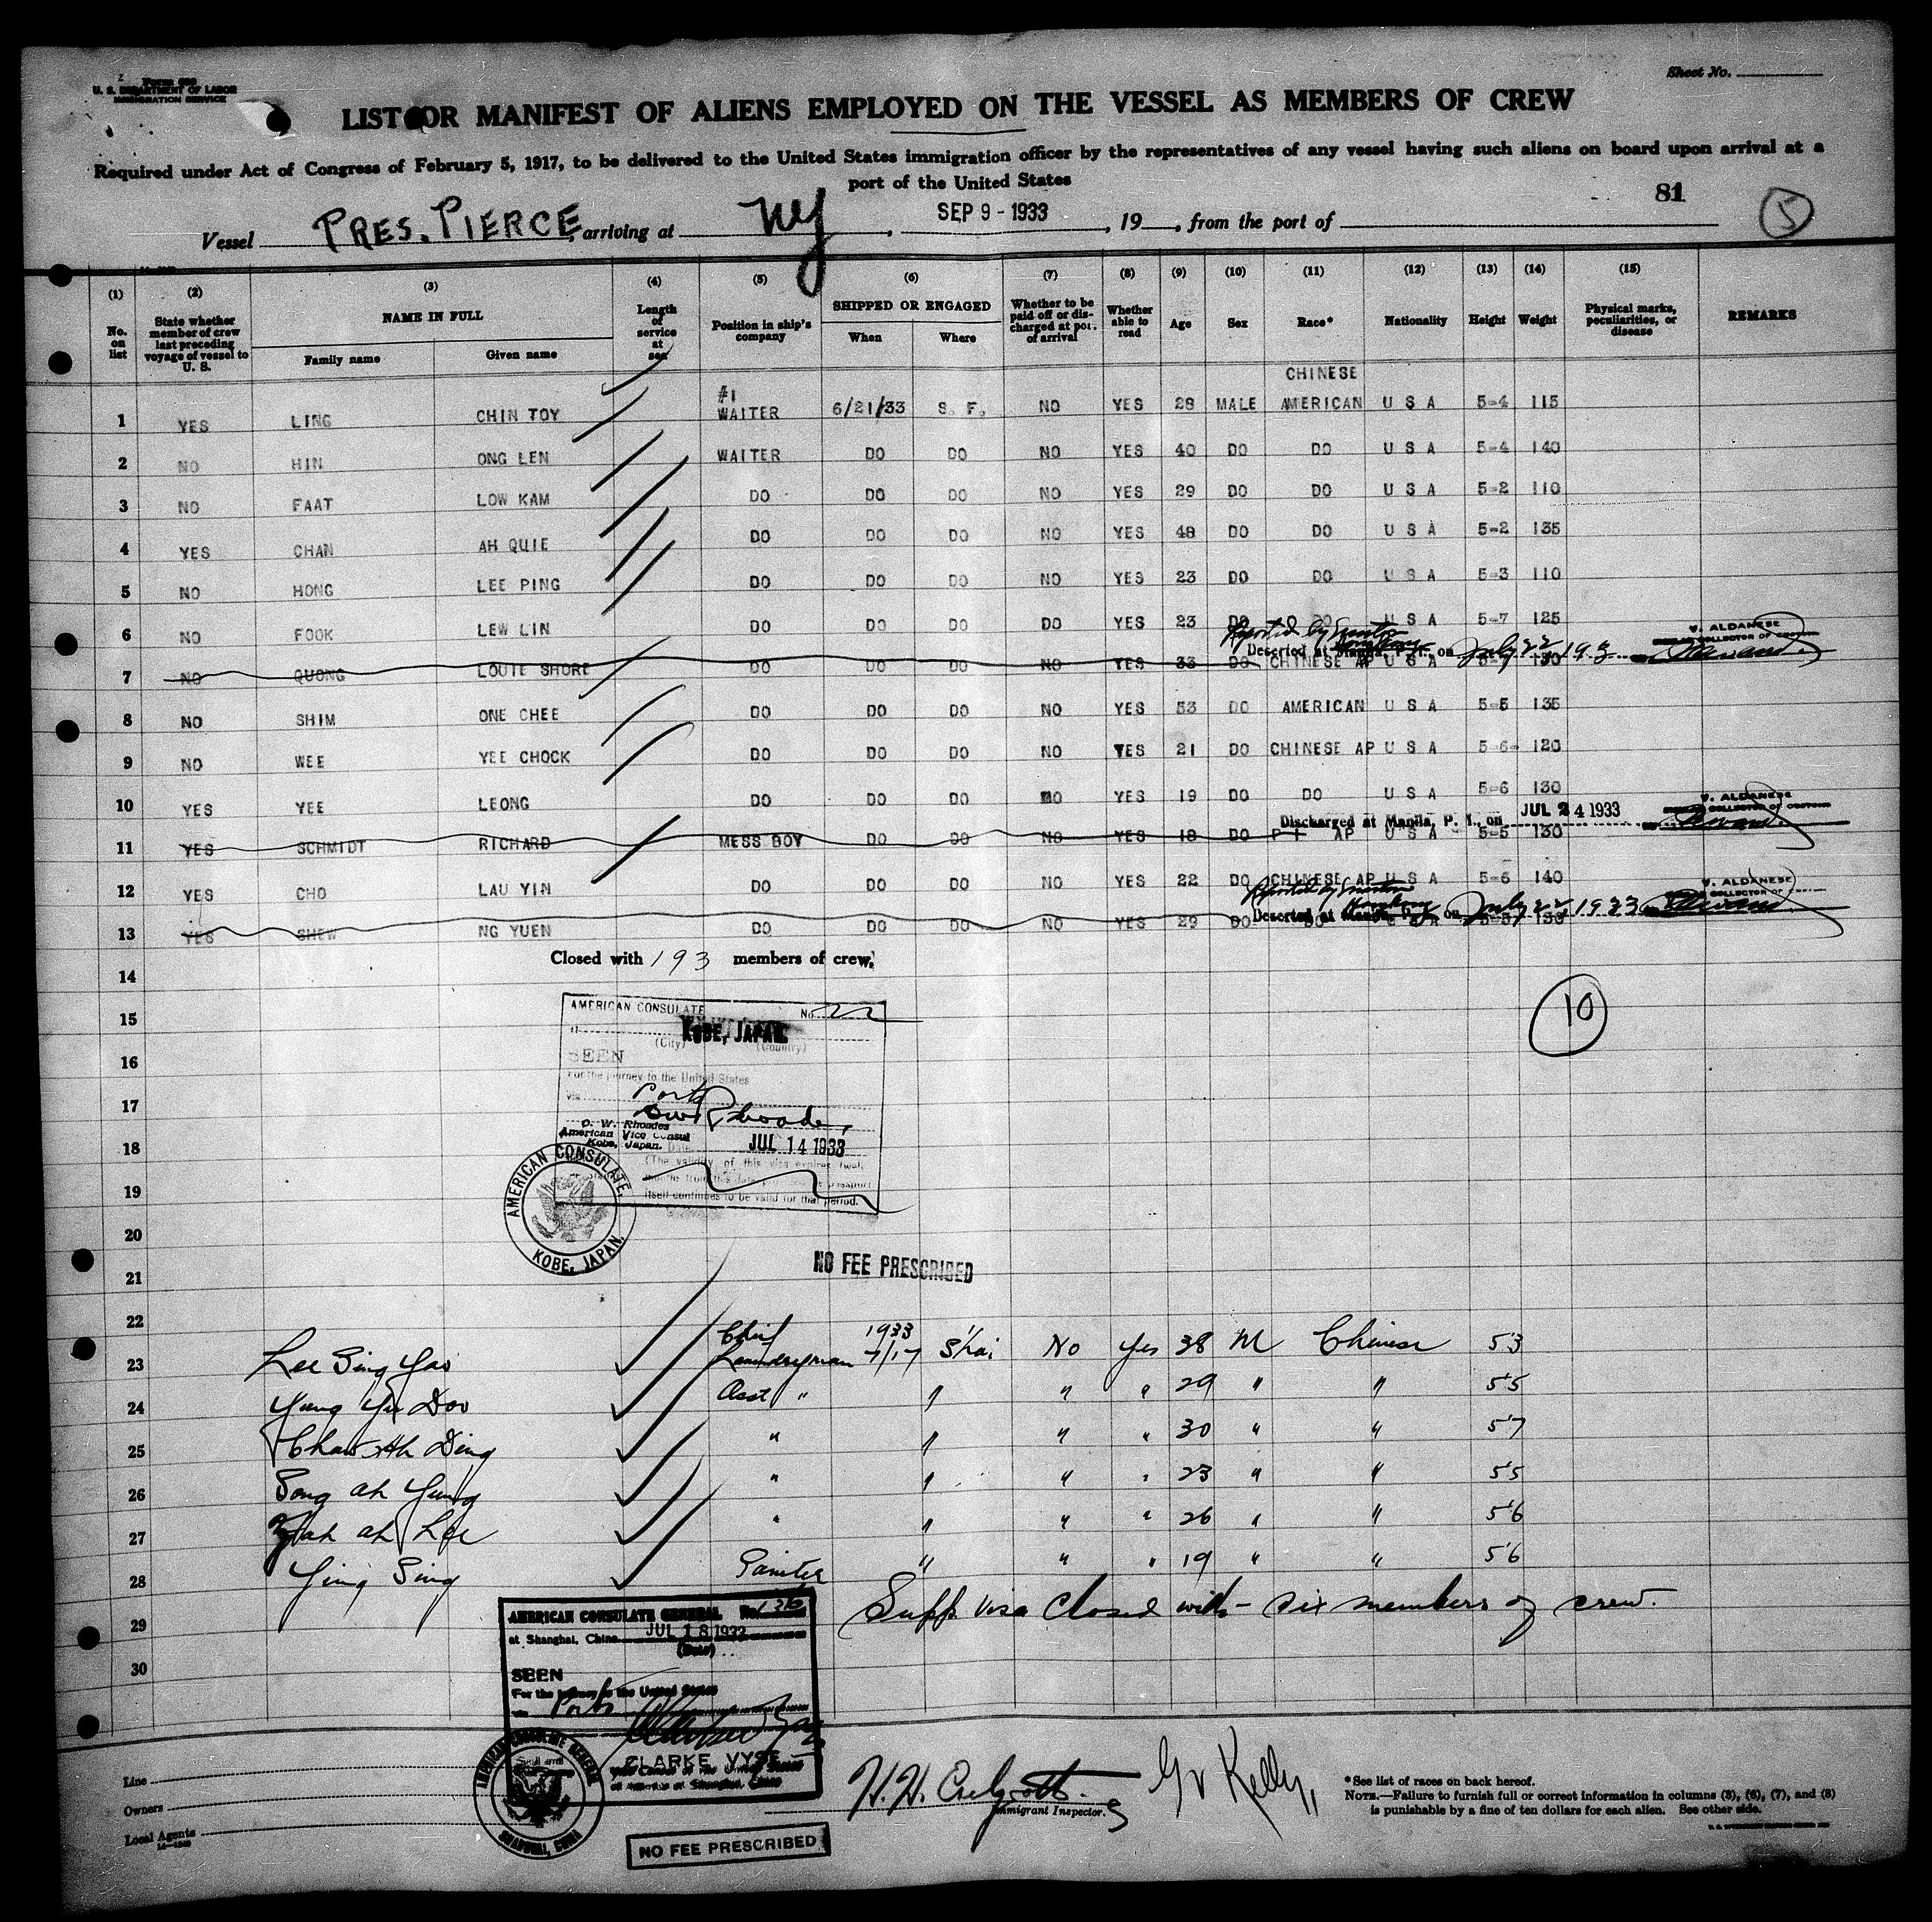 Form 689
U. S. DEPARTMENT OF LABOR
IMMIGRATION SERVICE
Sheet No.
LIST OR MANIFEST OF ALIENS EMPLOYED ON THE VESSEL AS MEMBERS OF CREW
Required under Act of Congress of February 5, 1917, to be delivered to the United States immigration officer by the representatives of any vessel having such aliens on board upon arrival at a
port of the United States
81
5
Vessel PRES. PIERCE, arriving at NY, SEP 9 - 1933, 19, from the port of
(1) (2) (3) (4) (5) (6) (7) (8) (9) (10) (11) (12) (13) (14) (15)
No. on list State whether member of crew last preceding voyage of vessel to U. S. NAME IN FULL Family name Given name Length of service at sea Position in ship's company SHIPPED OR ENGAGED When Where Whether to be paid off or discharged at port of arrival Whether able to read Age Sex Race* Nationality Height Weight Physical marks, peculiarities, or disease REMARKS
CHINESE
1 YES LING CHIN TOY #1 WAITER 6/21/33 S. F. NO YES 28 MALE AMERICAN U S A 5-4 115
2 NO HIN ONG LEN WAITER DO DO NO YES 40 DO DO U S A 5-4 140
3 NO FAAT LOW KAM DO DO DO NO YES 29 DO DO U S A 5-2 110
4 YES CHAN AH QUIE DO DO DO NO YES 48 DO DO U S A 5-2 135
5 NO HONG LEE PING DO DO DO NO YES 23 DO DO U S A 5-3 110
6 NO FOOK LEW LIN DO DO DO DO YES 23 DO DO U S A 5-7 125
Reported by Hongkong Deserted at Manila, P. I., on July 22, 193 V. ALDANESE COLLECTOR OF CUSTOMS
7 NO QUONG LOUIE SHORE DO DO DO NO YES 33 DO CHINESE AP U S A 130
8 NO SHIM ONE CHEE DO DO DO NO YES 53 DO AMERICAN U S A 5-5 135
9 NO WEE YEE CHOCK DO DO DO NO YES 21 DO CHINESE AP U S A 5-6 120
10 YES YEE LEONG DO DO DO NO YES 19 DO DO U S A 5-6 130
Discharged at Manila, P. I., on JUL 24 1933 V. ALDANESE COLLECTOR OF CUSTOMS
11 YES SCHMIDT RICHARD MESS BOY DO DO NO YES 18 DO P I AP U S A 5-5 130
12 YES CHO LAU YIN DO DO DO NO YES 22 DO CHINESE AP U S A 5-6 140
Reported by Hongkong Deserted at Manila, P. I., on July 22, 1933 V. ALDANESE COLLECTOR OF CUSTOMS
13 YES SHEW NG YUEN DO DO DO NO YES 29 DO DO U S A 5-5 130
Closed with 193 members of crew.
14
10
15
AMERICAN CONSULATE No. 22
KOBE, JAPAN
(City) (Country)
16
SEEN
For the journey to the United States
17
via Ports
O. W. Rhodes
American Vice Consul
Kobe, Japan. Date JUL 14 1933
18
(The validity of this visa expires
19
itself continues to be valid for that period.
AMERICAN CONSULATE, KOBE, JAPAN.
20
21
NO FEE PRESCRIBED
22
23 Lee Sing Yao Chief Laundryman 1933 7/17 S'hai No Yes 38 M Chinese 5'3
24 Yung Yu Doo Asst " " " " 29 " " 5'5
25 Chao Ah Ding " " " " 30 " " 5'7
26 Song Ah Yung " " " " 23 " " 5'5
27 Zah Ah Lee " " " " 26 " " 5'6
28 Ying Sing Painter " " " 19 " " 5'6
29 Supp. visa closed with - six members of crew.
30
AMERICAN CONSULATE GENERAL No. 126
at Shanghai, China JUL 18 1933
(Date)
SEEN
For the journey to the United States
via Ports
CLARKE VYSE
Vice Consul of the United States
of America at Shanghai, China
AMERICAN CONSULATE GENERAL SHANGHAI, CHINA
NO FEE PRESCRIBED
Line
Owners
Local Agents
Immigrant Inspector.
Kelly
*See list of races on back hereof.
NOTE.—Failure to furnish full or correct information in columns (3), (6), (7), and (8)
is punishable by a fine of ten dollars for each alien. See other side.